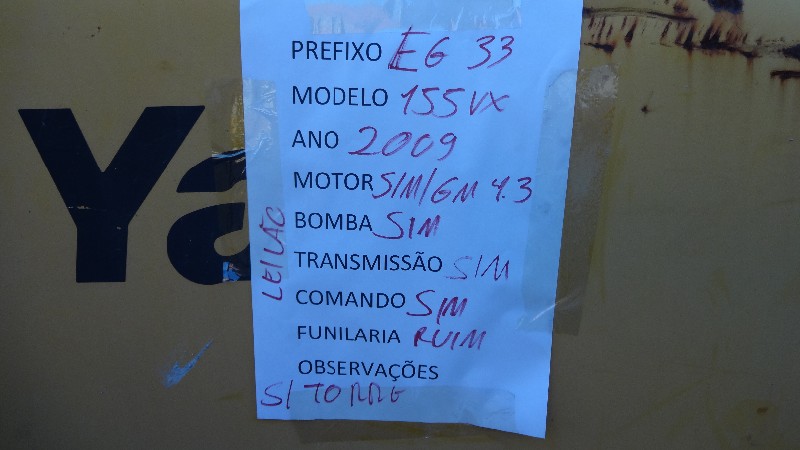 Ya
PREFIXO EG 33
MODELO 155VX
ANO 2009
MOTOR SIM/GM 4.3
BOMBA SIM
TRANSMISSÃO SIM
COMANDO SIM
FUNILARIA RUIM
OBSERVAÇÕES
S/ TORRE
LEILÃO